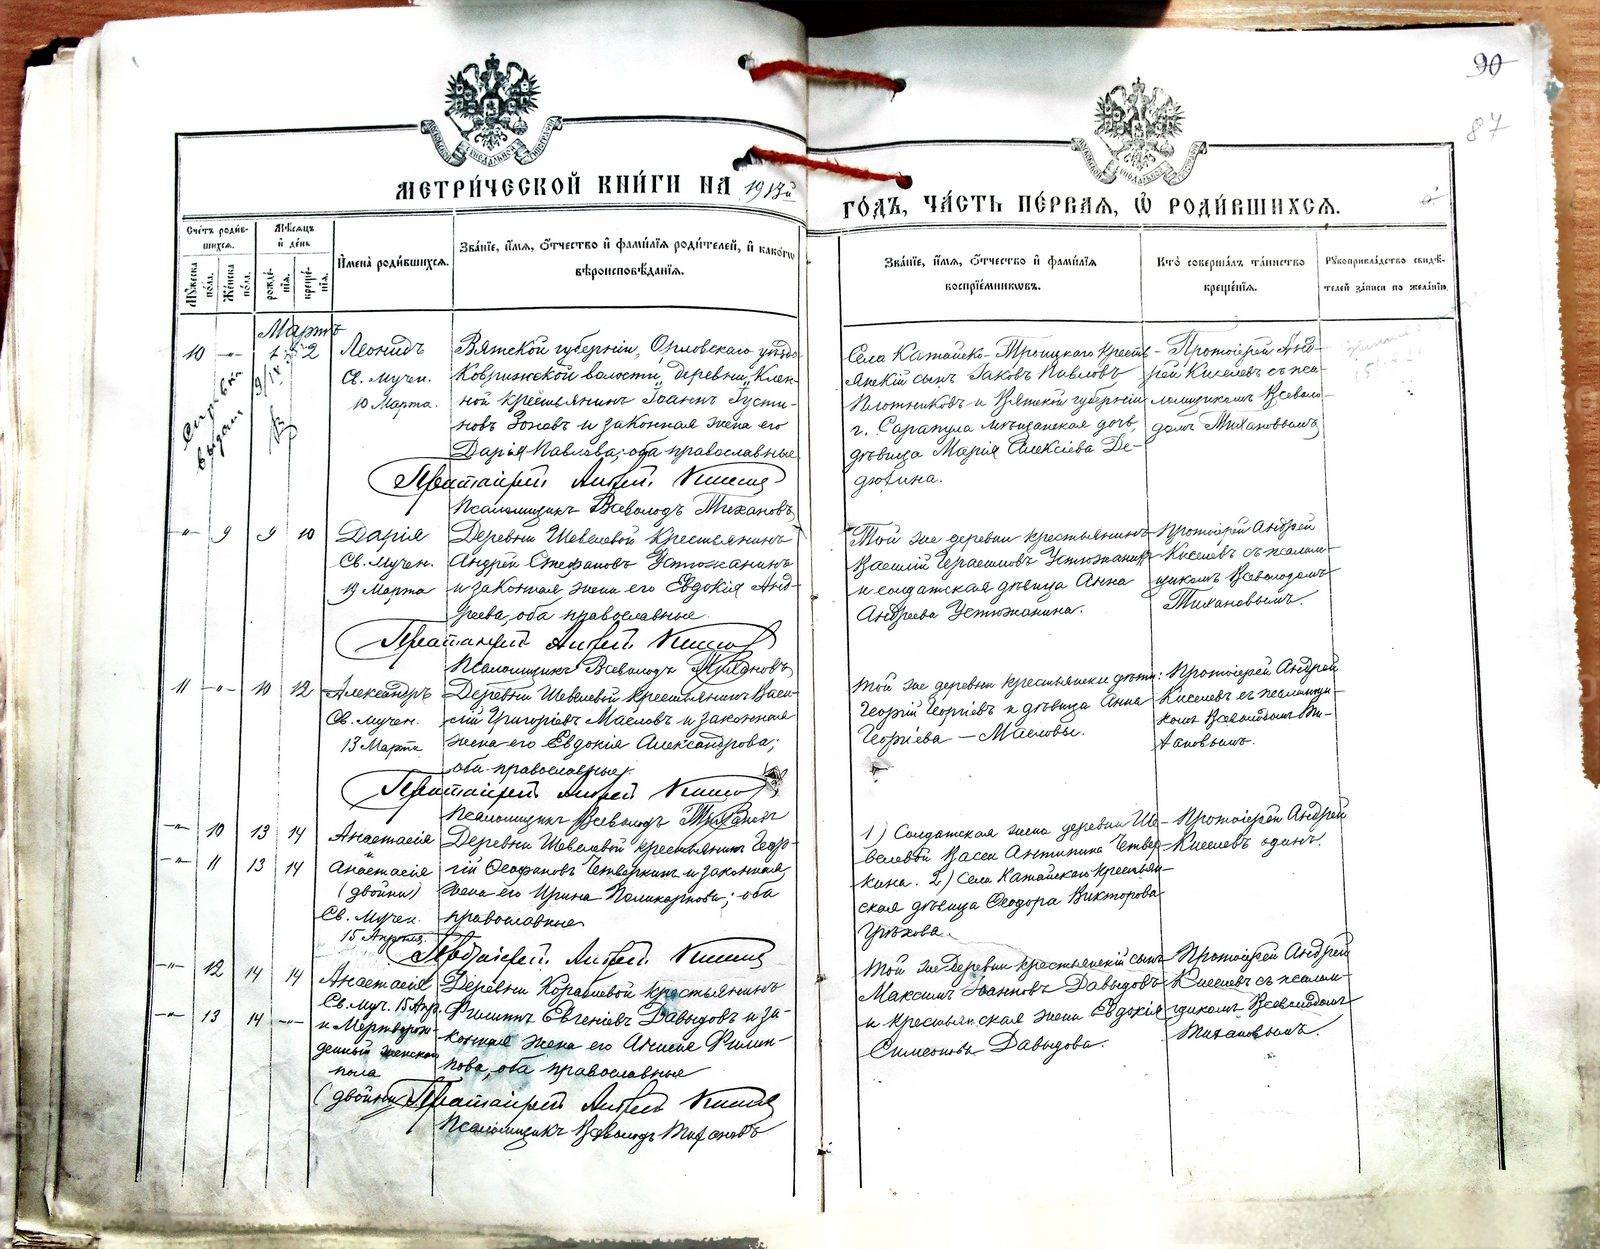 90
87
МЕТРИ́ЧЕСКОЙ КНИ́ГИ НА 1913й
ГО́ДЪ, ЧА́СТЬ ПЕ́РВАЯ, Ѡ҆ РОДИ́ВШИХСЯ.
Сче́тъ роди́в-
шихся.
Мѣ́сяцъ
и҆ де́нь
Му́жеска по́ла.
Же́нска по́ла.
рожде́-
нїя.
креще́-
нїя.
И҆мена̀ роди́вшихся.
Зва́нїе, и҆́мя, ѻ҆́тчество и҆ фами́лїя роди́телей, и҆ како́гѡ
вѣроисповѣ́данїя.
Зва́нїе, и҆́мя, ѻ҆́тчество и҆ фами́лїя
воспрїе́мниковъ.
Кто̀ соверша́лъ та́инство
креще́нїя.
Рꙋкоприкла́дство свидѣ́-
телей за́писи по жела́нїю.
Мартъ
10 -"- 1 2
Леонидъ
Св. Мучен.
10 Марта.
Справка
выдана
Вятской губерніи, Орловскаго уѣзда
Ковринской волости, деревни
крестьянинъ Іоаннъ Густи-
новъ Зоновъ и законная жена его
Дарія Павлова; оба православные
Протоіерей Андрей Киселев
Псаломщикъ Всеволодъ Тихановъ
Села Катайско-Троицкаго крестьь-
янскій сынъ Іаковъ Павловъ
Плотниковъ и Вятской губерніи
г. Сарапула мѣщанская дочь,
дѣвица Марія Алексіева Де-
дюхина.
Протоіерей Анд-
рей Киселевъ съ пса-
ломщикомъ Всеволо-
домъ Тихановымъ
-"- 9 9 10
Дарія
Св. Мучен.
19 Марта
Деревни Шевелевой крестьянинъ
Андрей Стефановъ Устюжанинъ
и законная жена его Евдокія Анд-
реева, оба православные.
Протоіерей Андрей Киселев
Псаломщикъ Всеволодъ Тихановъ
Той же деревни крестьянинъ
Василій Герасимовъ Устюжанинъ
и солдатская дѣвица Анна
Андреева Устюжанина.
Протоіерей Андрей
Киселевъ съ псалом-
щикомъ Всеволодомъ
Тихановымъ.
11 -"- 10 12
Александръ
Св. Мучен.
13 Марта
Деревни Шевелевой крестьянинъ Васи-
лій Григоріевъ Масловъ и законная
жена его Евдокія Александрова;
оба православные.
Протоіерей Андрей Киселев
Псаломщикъ Всеволодъ Тихановъ
Той же деревни крестьянски дѣти:
Георгій Георгіевъ и дѣвица Анна
Георгіева – Масловы.
Протоіерей Андрей
Киселевъ съ псаломщи-
комъ Всеволодомъ Ти-
хановымъ.
-"- 10 13 14
Анастасія
и
-"- 11 13 14
Анастасія
(двойни)
Св. Мучен.
15 Апреля
Деревни Шевелевой крестьянинъ Геор-
гій Ѳеофановъ Четверкинъ и законная
жена его Ирина Поликарпова; оба
православные
Протоіерей Андрей Киселев
1) Солдатская жена деревни Ше-
велевой Васса Антипина Четвер-
кина. 2) Села Катайскаго крестьян-
ская дѣвица Ѳеодора Викторова
Грѣхова.
Протоіерей Андрей
Киселевъ одинъ.
-"- 12 14 14
Анастасія
Св. Муч. 15 Апр.
-"- 13 14 -"-
и Мертворож-
денный женскаго
пола
(двойни)
Деревни Корюшевой крестьянинъ
Филиппъ Евгеніевъ Давыдовъ и за-
конная жена его Анисія Филип-
пова, оба православные
Протоіерей Андрей Киселев
Псаломщикъ Всеволодъ Тихановъ
Той же деревни крестьянскій сынъ
Максимъ Іоанновъ Давыдовъ
и крестьянская жена Евдокія
Симеонова Давыдова.
Протоіерей Андрей
Киселевъ съ псалом-
щикомъ Всеволодомъ
Тихановымъ.